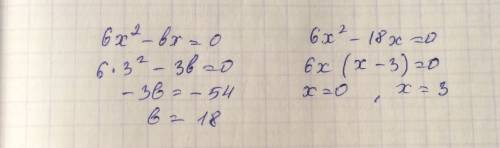 6x² - bx = 0
6·3² - 3b = 0
-3b = -54
b = 18
6x² - 18x = 0
6x (x - 3) = 0
x = 0 , x = 3